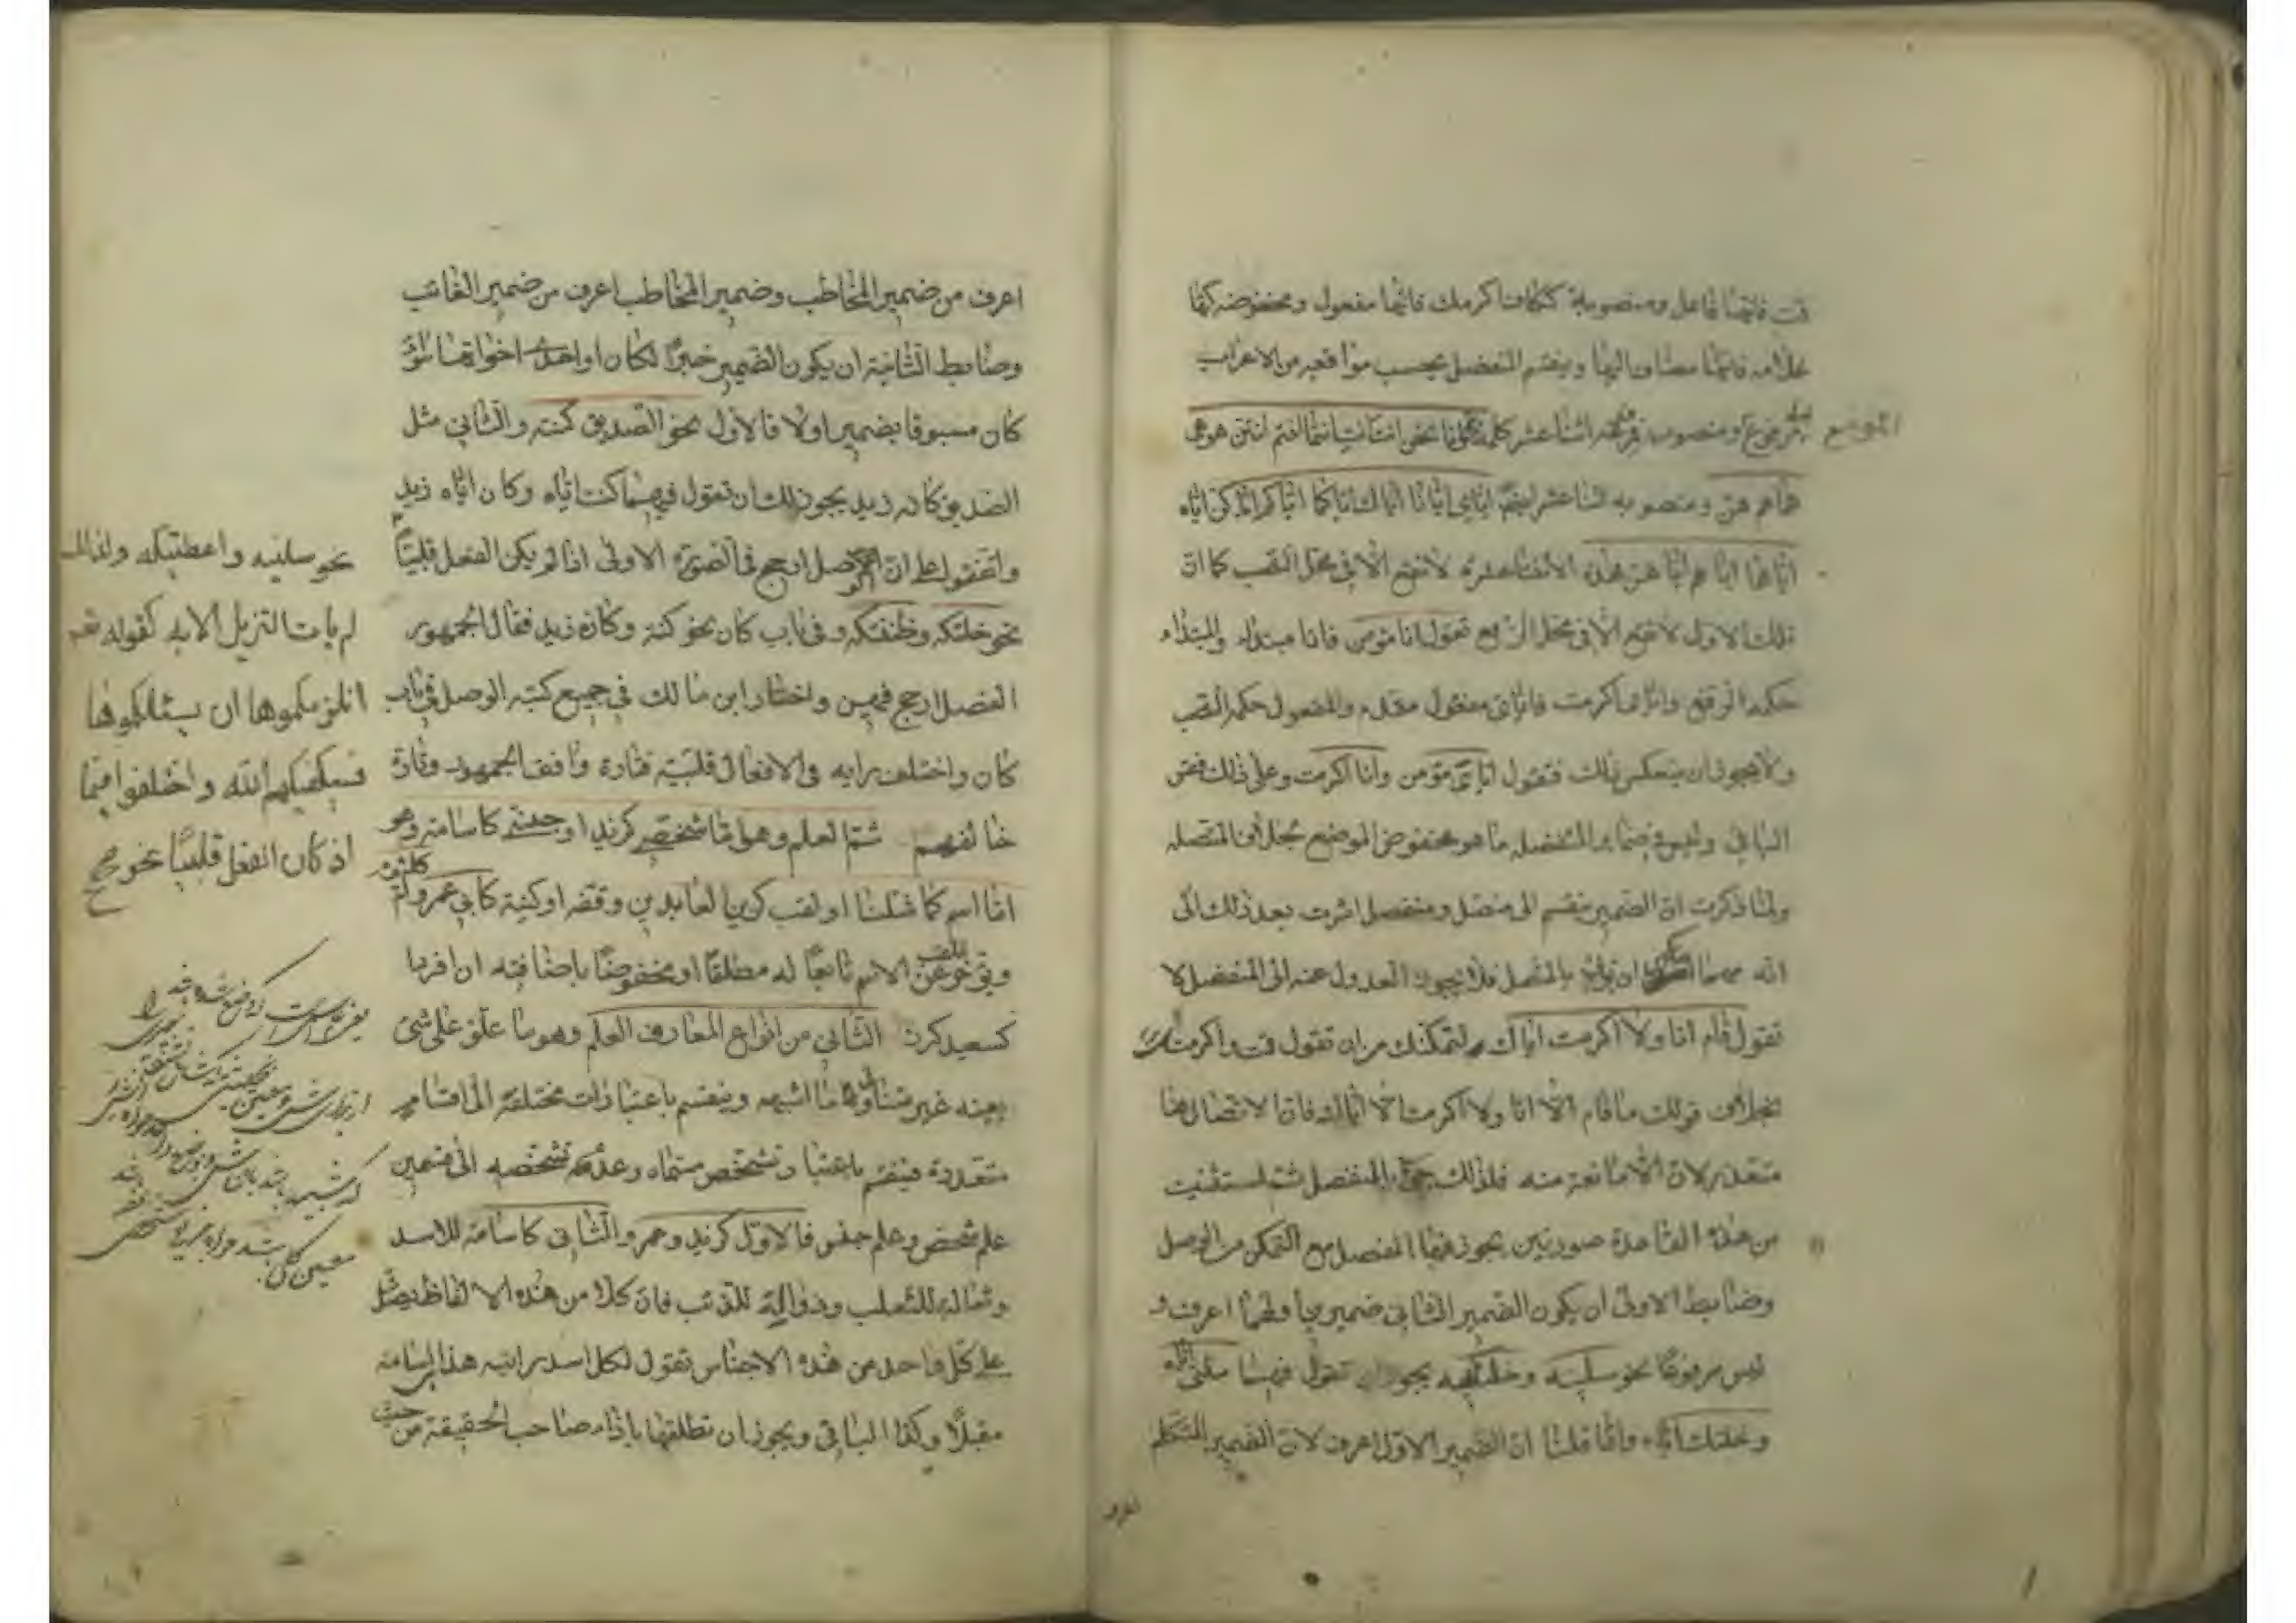 قمت فانها فاعل ومنصوبة ككاف اكرمك فانها مفعول ومخفوضة كهاء
غلامه فانها مضاف اليها وينقسم المنفصل بحسب مواقعه من الاعراب
الى مرفوع الموضع ومنصوبه فمرفوعه اثنا عشر كلمة انا نحن انت انت انتما انتم انتن هو هي
هما هم هن ومنصوبه اثنا عشر ايضا اياي ايانا اياك اياكما اياكم اياكن اياه
اياها اياهم اياهن فهذه الاثنتا عشرة لا تقع الا في محل النصب كما ان
تلك الاول لا تقع الا في محل الرفع تقول انا مؤمن فانا مبتداء والمبتداء
حكمه الرفع واياى اكرمت فاياى مفعول مقدم والمفعول حكمه النصب
ولا يجوز ان ينعكس ذلك فتقول اياى مؤمن وانا اكرمت وعلى ذلك فقس
الباقي وليس في ضماير المنفصله ما هو مخفوض الموضع بخلاف المتصله
ولما ذكرت ان الضمير ينقسم الى متصل ومنفصل اشرت بعد ذلك الى
انه مهما امكن ان يؤتى بالمتصل فلا يجوز العدول عنه الى المنفصل لا
تقول قام انا ولا اكرمت اياك لتمكنك من ان تقول قمت واكرمتك
بخلاف قولك ما قام الا انا ولا اكرمت الا اياك فان الاتصال هنا
متعذر لان الا مانعة منه فلذلك جئ بالمنفصل ثم استثنيت
من هذه القاعدة صورتين يجوز فيها المنفصل مع التمكن من الوصل
وضابط الاولى ان يكون الضمير الثاني ضميرين اولهما اعرف و
ليس مرفوعا نحو سلنيه وخلتكه يجوز ان تقول فيهما سلنى اياه
وخلتك اياه وانما قلنا ان الضمير الاول اعرف لان الضمير المتكلم
اعرف
اعرف من ضمير المخاطب وضمير المخاطب اعرف من ضمير الغائب
وضابط الثانية ان يكون الضمير خبرا لكان او احدى اخواتها سواء
كان مسبوقا بضمير اولا فالاول نحو الصديق كنته والثاني مثل
الصديق كانه زيد يجوز لك ان تقول فيهما كنت اياه وكان اياه زيد
واتفقوا على ان الوصل ارجح في الصورة الاولى اذا لم يكن الفعل قلبيا
نحو خلتكه وظننتكه وفى باب كان نحو كنته وكانه زيد فقال الجمهور
الفصل ارجح فيهن واختار ابن مالك في جميع كتبه الوصل في باب
كان واختلف رايه في الافعال قلبية فتارة وافق الجمهور وتارة
خالفهم ثم العلم وهو اما شخصي كزيد او جنسي كاسامة وهو
اما اسم كما مثلنا او لقب كزين العابدين وقفه او كنية كابي عمرو وام كلثوم
ويؤخر اللقب عن الاسم تابعا له مطلقا او مخفوضا باضافته ان افردا
كسعيد كرز الثاني من انواع المعارف العلم وهو ما علق على شئ
بعينه غير متناول ما اشبهه وينقسم باعتبارات مختلفة الى اقسام
متعددة فينقسم باعتبار تشخص مسماه وعدم تشخصه الى قسمين
علم شخص وعلم جنس فالاول كزيد وعمرو والثاني كاسامة للاسد
وثعالة للثعلب وذوالة للذئب فان كلا من هذه الالفاظ يصدق
على كل واحد من هذه الاجناس تقول لكل اسد رايته هذا اسامة
مقبلا وكذا الباقي ويجوز ان تطلقها بازاء صاحب الحقيقة من حيث
نحو سلنيه واعطنيكه ولذلك
لم يات التنزيل الا به كقوله تعم
انلزمكموها ان يسئلكموها
فسيكفيكهم الله واختلفوا فيما
اذ كان الفعل قلبيا نحو صح